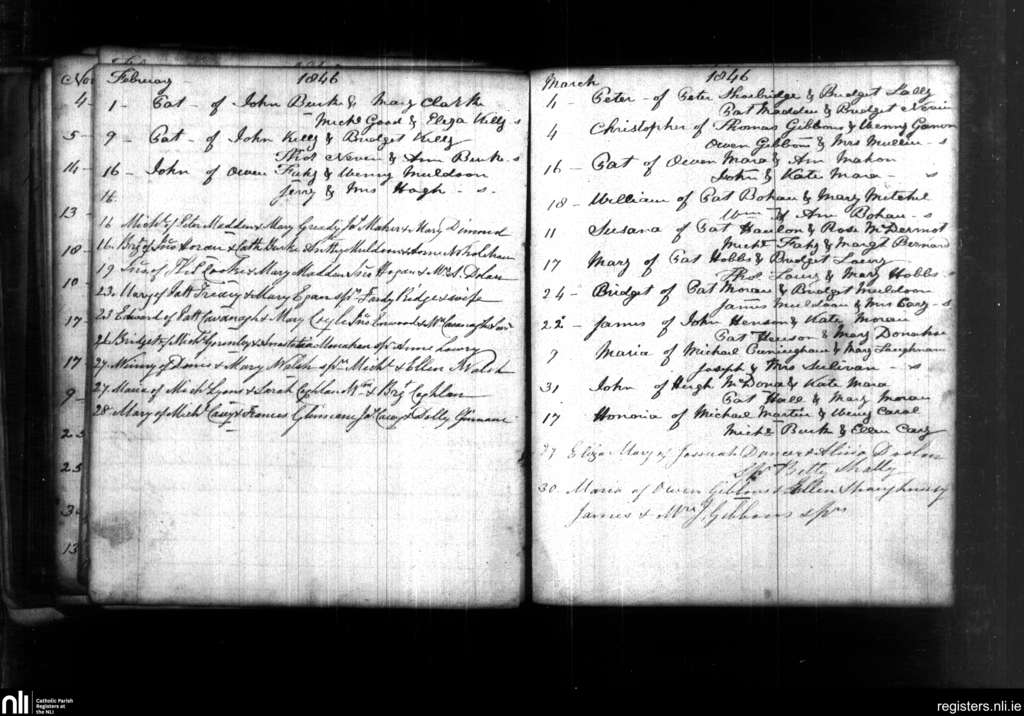 Nov
4
5
14
13
18
10
17
17
9
23
25
13
February 1846
1 - Pat - of John Burk & Mary Clark
Michl Good & Eliza Kelly s
9 - Pat - of John Kelly & Bridget Kelly
Thos Neven & Ann Burk - s
16 - John of Owen Fahy & Weny Muldoon
Jerry & Mrs Hogh - s.
16
16 Michl of Peter Madden & Mary Greedy Jas Maher & Mary Dimond
16 Brgt of Jno Horan & Cath Burke
19 of Thos & Mary Madden Jno Hogan & Mrs S. Dolan
23 Mary of Patt & Mary Egan sps Fardy Ridge & wife
23 Edward of Patt Cavanagh & Mary Coyle Jno & Mrs Cavanagh
26 Bridget of Michl & Anastatia Monahan sp Anne Lowry
27 Winny of Denis & Mary Walsh sps Michl & Ellen Walsh
27 Maria of Michl Lyons & Sarah Coghlan Wm & Brgt Coghlan
28 Mary of Michl Casey & Frances Glennane Jas Casey & Sally Glennane
March 1846
4 - Peter - of Peter Thorbidge & Bridget Lally
Pat Madden & Bridget Nevin
4 Christopher of Thomas Gibbons & Weny Ganon
Owen Gibbons & Mrs Mullin - s
16 - Pat of Owen Mara & Ann Mahon
John & Kate Mara - s
18 - William of Pat Bohan & Mary Mitchel
Wm & Ann Bohan - s
11 Susana of Pat Hanlon & Rose McDermot
Michl Fahy & Margt Bernard
17 Mary of Pat Hobbs & Bridget Lowry
Thos Lowry & Mary Hobbs s
24 - Bridget of Pat Moran & Bridget Muldoon
James Muldoon & Mrs Cary - s
22 - James of John Henson & Kate Moran
Pat Henson & Mary Donahue
9 Maria of Michael Cuningham & Mary Loughnan
Joseph & Mrs Sulivan - s
31 John of Hugh McDonal & Kate Mara
Pat Hall & Mary Moran
17 Honoria of Michael Martin & Weny Caral
Michl Burk & Ellen Cary
27 Eliza Mary of Josmiah Dancer & Alicia Doolan
Sps Betty Shally
30 Maria of Owen Gibbons & Ellen Shaughnessy
James & Mrs J. Gibbons sps
nli Catholic Parish
Registers at
the NLI
registers.nli.ie